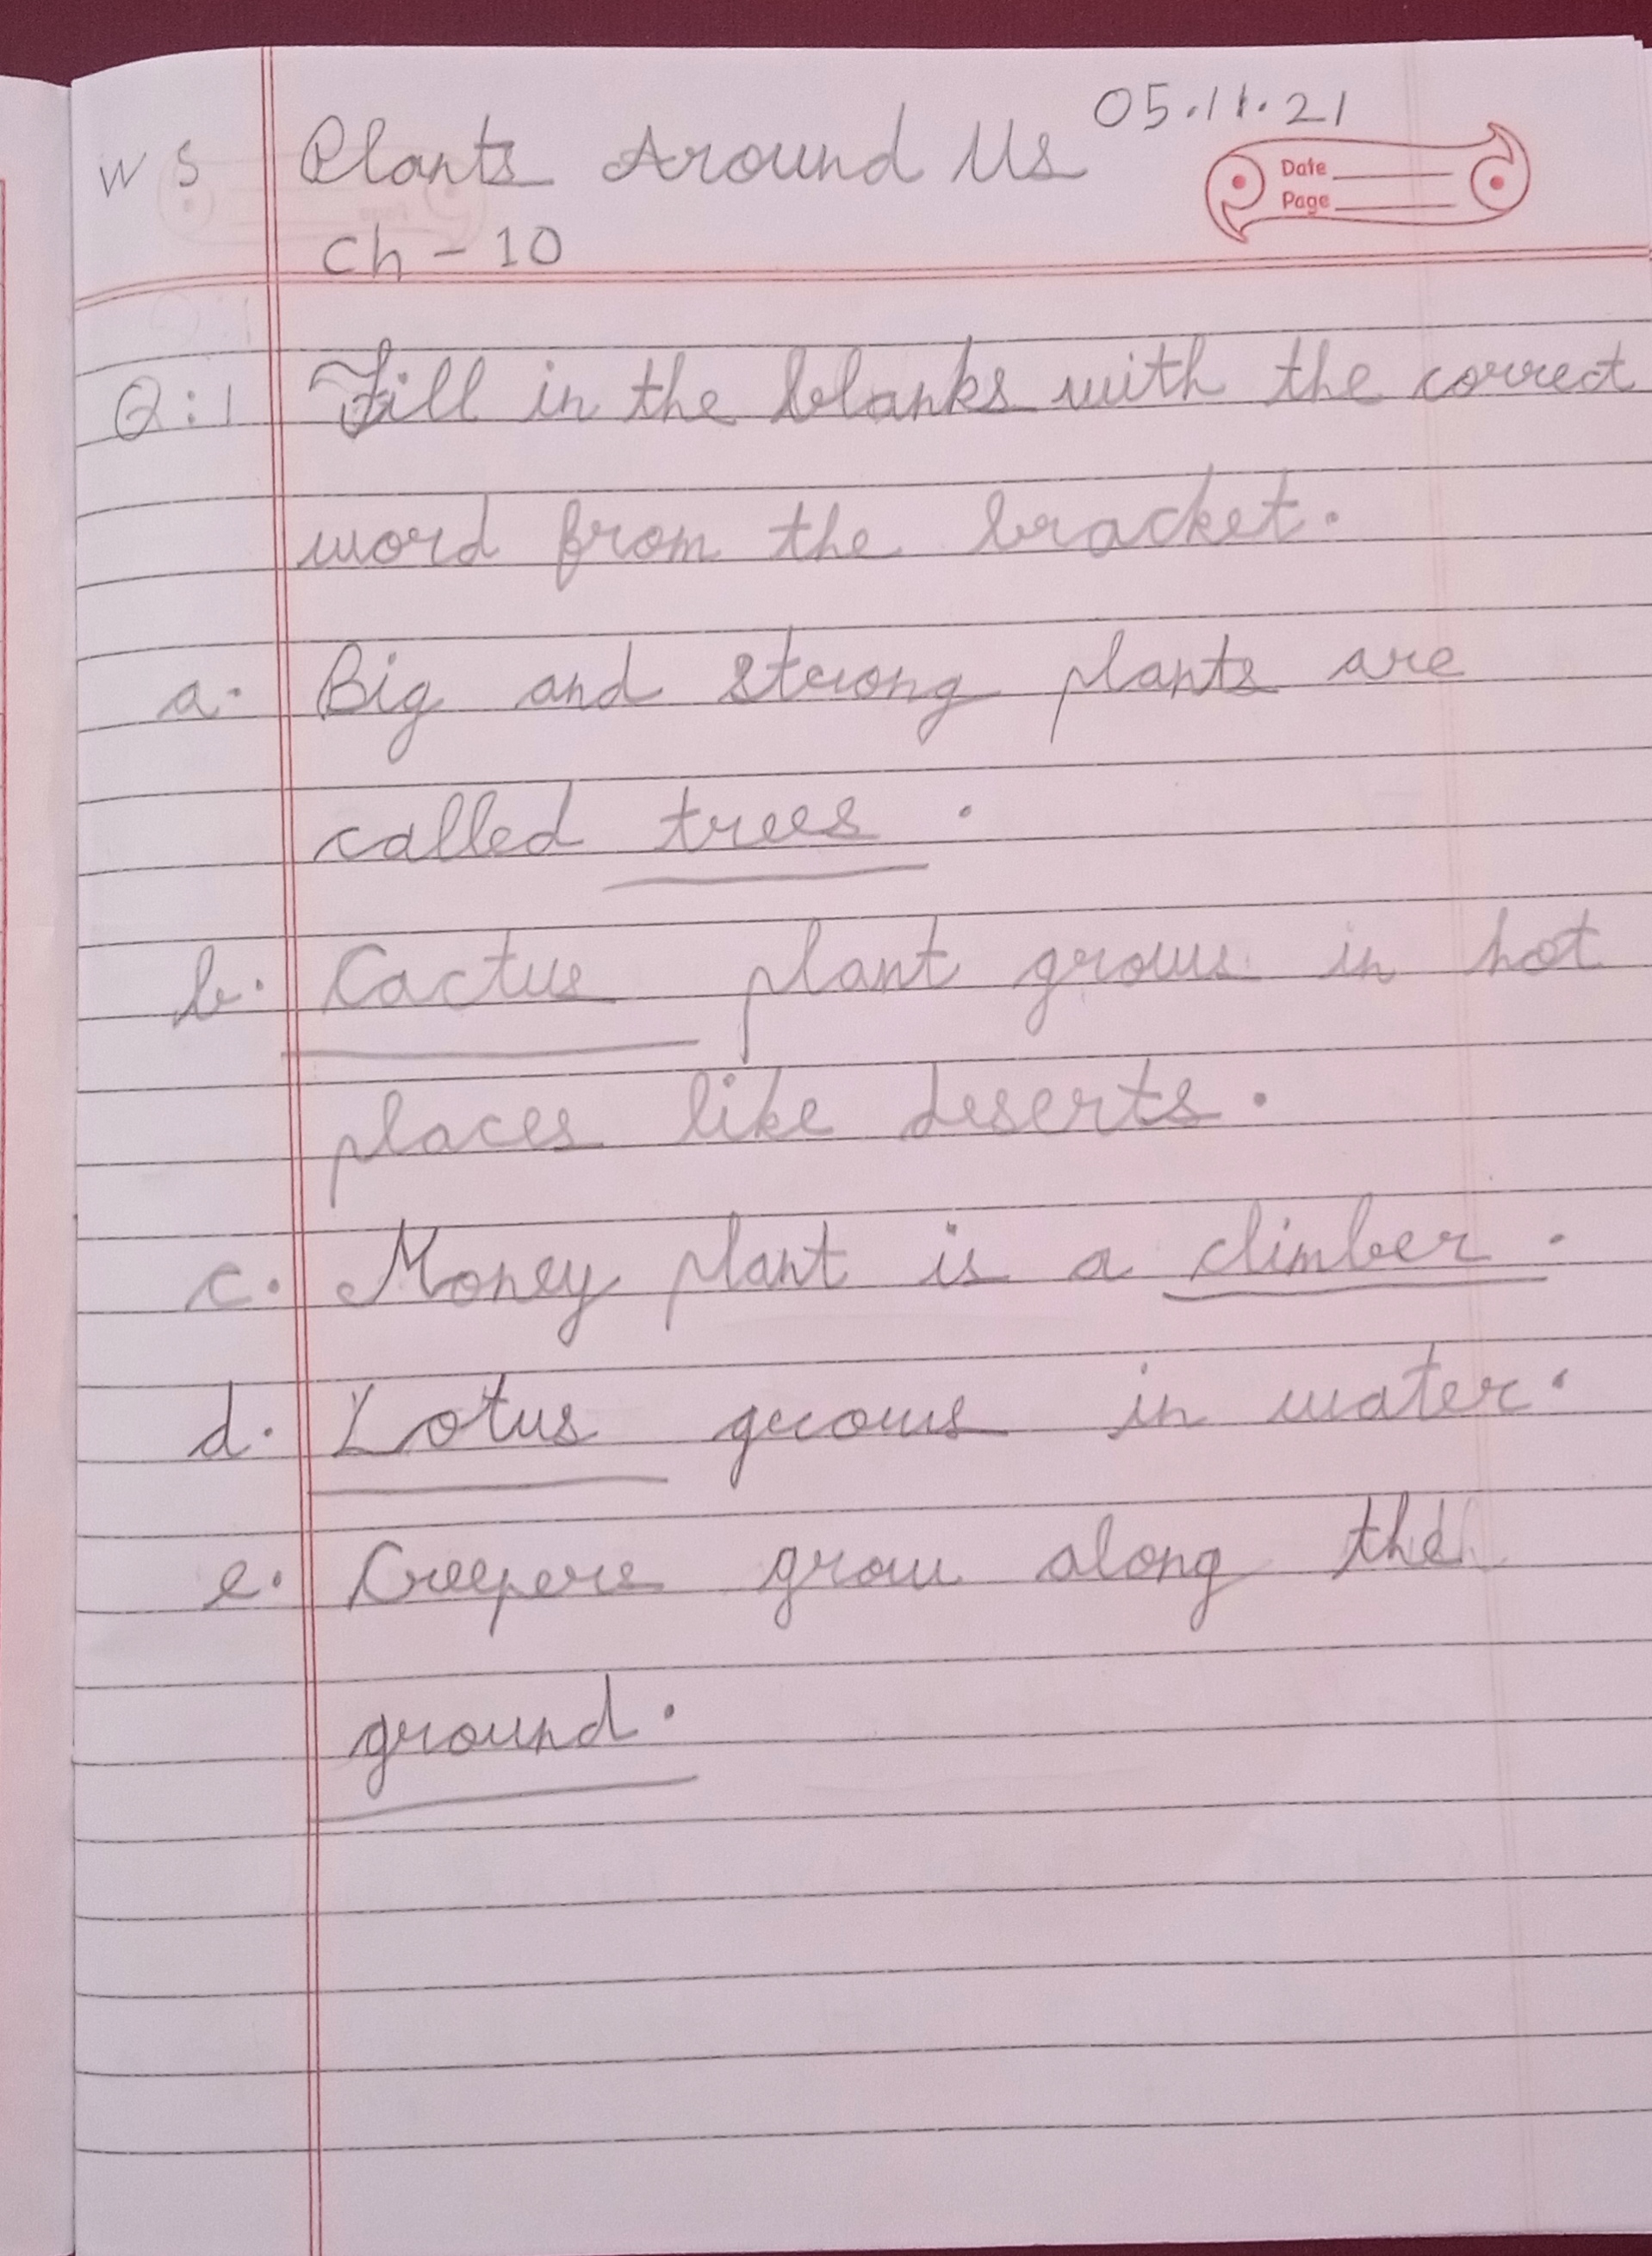 05.11.21
W S Plants Around Us
Date
Page
Ch - 10
Q:1 Fill in the blanks with the correct
word from the bracket.
a. Big and strong plants are
called trees.
b. Cactus plant grows in hot
places like deserts.
c. Money plant is a climber.
d. Lotus grows in water.
e. Creepers grow along the
ground.